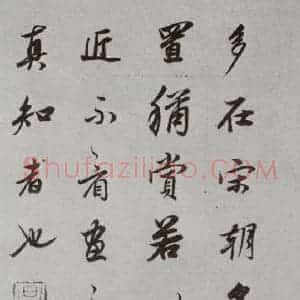 多在宋朝
置賞若
近不看畫
真知者也
Shufaziliao.COM